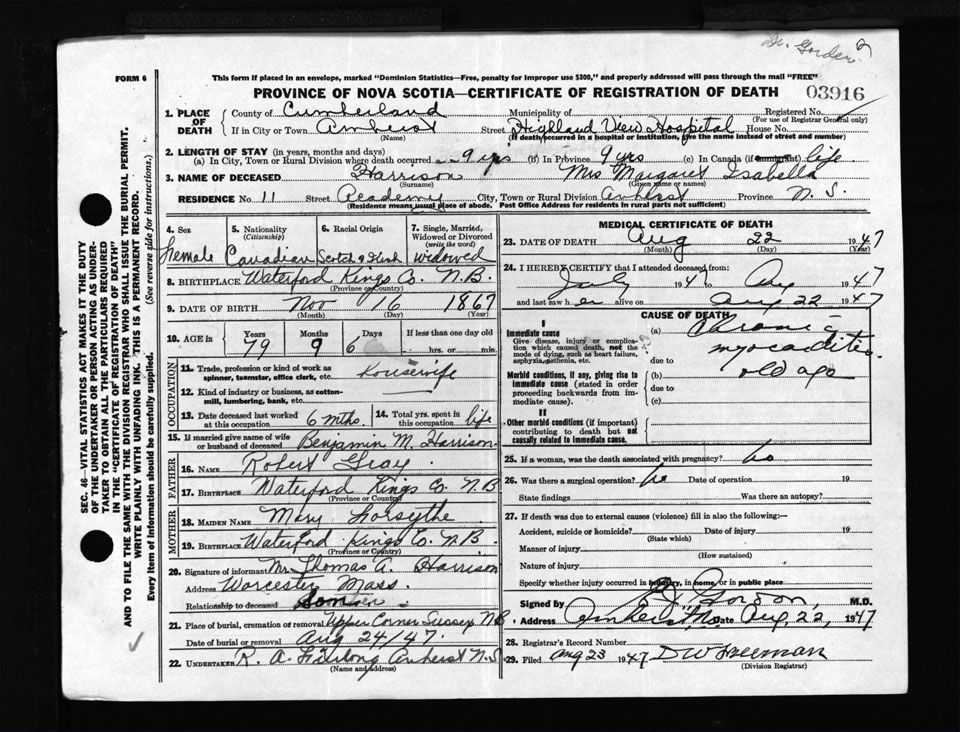 Dr. Gordon
FORM 6
This form if placed in an envelope, marked "Dominion Statistics—Free, penalty for improper use $300," and properly addressed will pass through the mail "FREE"
PROVINCE OF NOVA SCOTIA—CERTIFICATE OF REGISTRATION OF DEATH
03916
1. PLACE OF DEATH County of Cumberland Municipality of Registered No.
(For use of Registrar General only)
If in City or Town Amherst Street Highland View Hospital House No.
(Name) (If death occurred in a hospital or institution, give the name instead of street and number)
2. LENGTH OF STAY (in years, months and days)
(a) In City, Town or Rural Division where death occurred 9 yrs (b) In Province 9 yrs (c) In Canada (if immigrant) life
3. NAME OF DECEASED Harrison Mrs Margaret Isabella
(Surname) (Given name or names)
RESIDENCE No 11 Street Academy City, Town or Rural Division Amherst Province N.S.
(Residence means usual place of abode. Post Office Address for residents in rural parts not sufficient)
4. Sex Female
5. Nationality (Citizenship) Canadian
6. Racial Origin Scotch & Irish
7. Single, Married, Widowed or Divorced (write the word) widowed
8. BIRTHPLACE Waterford Kings Co. N.B.
(Province or Country)
9. DATE OF BIRTH Nov 16 1867
(Month) (Day) (Year)
10. AGE in Years 79 Months 9 Days 6 If less than one day old
hrs. or min.
OCCUPATION
11. Trade, profession or kind of work as spinner, teamster, office clerk, etc. housewife
12. Kind of industry or business, as cotton-mill, lumbering, bank, etc.
13. Date deceased last worked at this occupation 6 mths.
14. Total yrs. spent in this occupation life
15. If married give name of wife or husband of deceased Benjamin M. Harrison
FATHER
16. NAME Robert Gray
17. BIRTHPLACE Waterford Kings Co. N B
(Province or Country)
MOTHER
18. MAIDEN NAME Mary Forsythe
19. BIRTHPLACE Waterford Kings Co. N.B.
(Province or Country)
20. Signature of informant Mr. Thomas A. Harrison
Address Worcester Mass.
Relationship to deceased Son
21. Place of burial, cremation or removal Upper Corner Sussex N B
Date of burial or removal Aug 24/47.
22. UNDERTAKER R. A. Furlong Amherst N.S.
(Name and address)
MEDICAL CERTIFICATE OF DEATH
23. DATE OF DEATH Aug 22 1947
(Month) (Day) (Year)
24. I HEREBY CERTIFY that I attended deceased from:
July 1947 to Aug 1947
and last saw her alive on Aug 22 1947
CAUSE OF DEATH
I
Immediate cause
Give disease, injury or complication which caused death, not the mode of dying, such as heart failure, asphyxia, asthenia, etc.
(a) Chronic myocarditis
due to old age
Morbid conditions, if any, giving rise to immediate cause (stated in order proceeding backwards from immediate cause).
(b)
due to
(c)
II
Other morbid conditions (if important) contributing to death but not causally related to immediate cause.
25. If a woman, was the death associated with pregnancy? no
26. Was there a surgical operation? no Date of operation 19
State findings Was there an autopsy?
27. If death was due to external causes (violence) fill in also the following:—
Accident, suicide or homicide? Date of injury 19
(State which)
Manner of injury
(How sustained)
Nature of injury
Specify whether injury occurred in industry, in home, or in public place
Signed by Gordon, M.D.
Address Amherst Date Aug, 22, 1947
28. Registrar's Record Number
29. Filed Aug 23 1947 D W Freeman
(Division Registrar)
SEC. 46—VITAL STATISTICS ACT MAKES IT THE DUTY
OF THE UNDERTAKER OR PERSON ACTING AS UNDER-
TAKER TO OBTAIN ALL THE PARTICULARS REQUIRED
IN THE "CERTIFICATE OF REGISTRATION OF DEATH"
AND TO FILE THE SAME WITH THE DIVISION REGISTRAR WHO SHALL ISSUE THE BURIAL PERMIT.
WRITE PLAINLY WITH UNFADING INK. THIS IS A PERMANENT RECORD.
Every item of information should be carefully supplied. (See reverse side for instructions.)